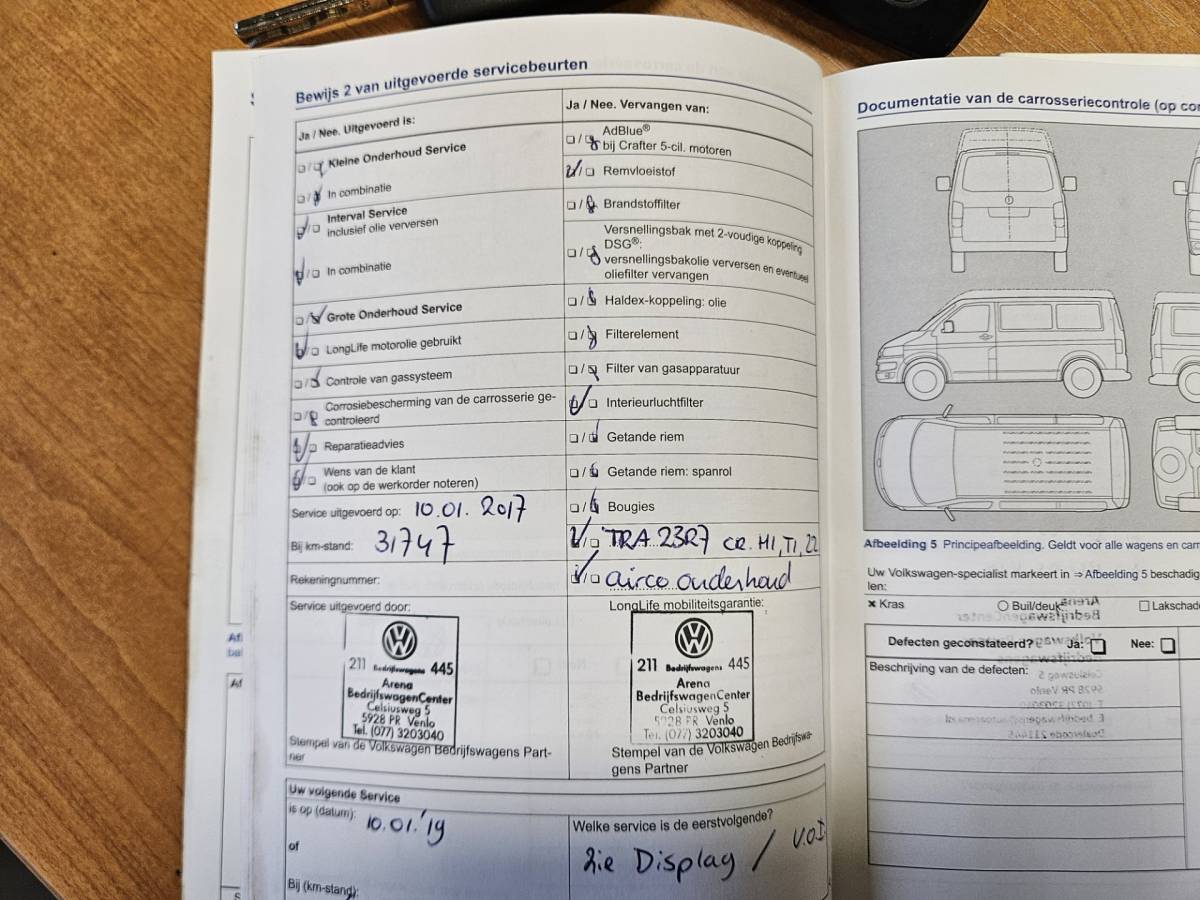 Bewijs 2 van uitgevoerde servicebeurten
Ja / Nee. Uitgevoerd is:
Kleine Onderhoud Service
In combinatie
Interval Service
inclusief olie verversen
In combinatie
Grote Onderhoud Service
LongLife motorolie gebruikt
Controle van gassysteem
Corrosiebescherming van de carrosserie ge-
controleerd
Reparatieadvies
Wens van de klant
(ook op de werkorder noteren)
Service uitgevoerd op: 10.01.2017
Bij km-stand: 31747
Rekeningnummer:
Service uitgevoerd door:
211 Bedrijfswagens 445
Arena
BedrijfswagenCenter
Celsiusweg 5
5928 PR Venlo
Tel. (077) 3203040
Stempel van de Volkswagen Bedrijfswagens Part-
ner
Ja / Nee. Vervangen van:
AdBlue®
bij Crafter 5-cil. motoren
Remvloeistof
Brandstoffilter
Versnellingsbak met 2-voudige koppeling
DSG®:
versnellingsbakolie verversen en eventueel
oliefilter vervangen
Haldex-koppeling: olie
Filterelement
Filter van gasapparatuur
Interieurluchtfilter
Getande riem
Getande riem: spanrol
Bougies
TRA 23R7 CR. M1, T1, 22
airco onderhoud
LongLife mobiliteitsgarantie:
211 Bedrijfswagens 445
Arena
BedrijfswagenCenter
Celsiusweg 5
5928 PR Venlo
Tel. (077) 3203040
Stempel van de Volkswagen Bedrijfswa-
gens Partner
Uw volgende Service
is op (datum): 10.01.'19
of
Bij (km-stand):
Welke service is de eerstvolgende?
zie Display / V.O.D
Documentatie van de carrosseriecontrole (op
Afbeelding 5 Principeafbeelding. Geldt voor alle wagens en
Uw Volkswagen-specialist markeert in ⇒ Afbeelding 5
len:
Kras
Buil/deuk
Defecten geconstateerd? Ja: Nee:
Beschrijving van de defecten: